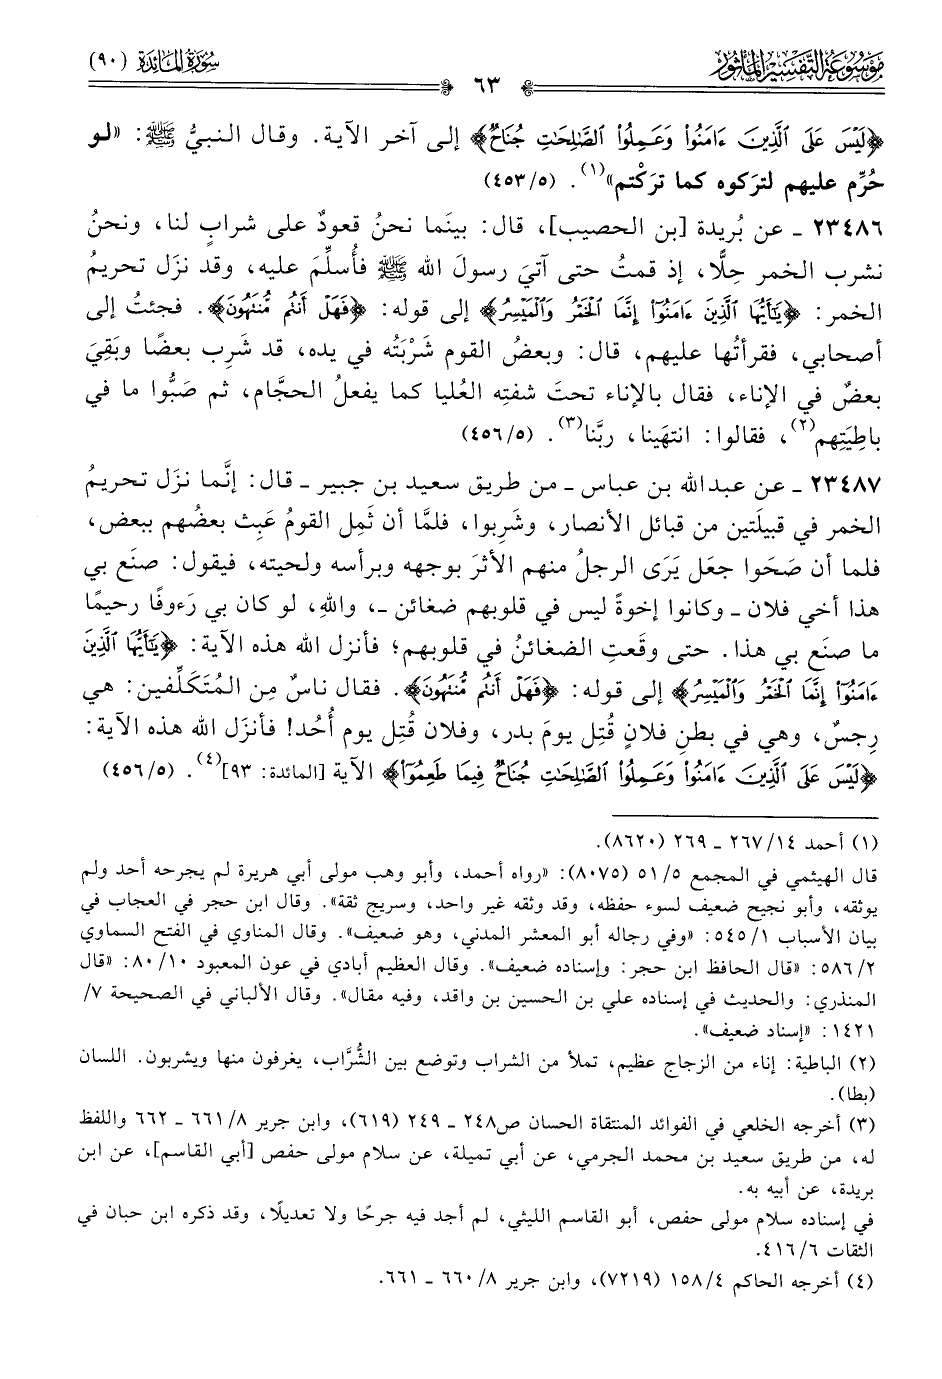 مَوْسُوعَةُ التَّفْسِيرِ المَأْثُورِ
٦٣
سُورَةُ المَائِدَةِ (٩٠)
﴿لَيْسَ عَلَى ٱلَّذِينَ ءَامَنُوا۟ وَعَمِلُوا۟ ٱلصَّـٰلِحَـٰتِ جُنَاحٌ﴾ إلى آخر الآية. وقال النبيُّ ﷺ: «لو
حُرِّم عليهم لتركوه كما تركتم»(١). (٤٥٣/٥)
٢٣٤٨٦ ـ عن بُريدة [بن الحصيب]، قال: بينَما نحنُ قعودٌ على شرابٍ لنا، ونحنُ
نشرب الخمر حِلًّا، إذ قمتُ حتى آتيَ رسولَ الله ﷺ فأُسلِّمَ عليه، وقد نزَل تحريمُ
الخمر: ﴿يَـٰٓأَيُّهَا ٱلَّذِينَ ءَامَنُوٓا۟ إِنَّمَا ٱلْخَمْرُ وَٱلْمَيْسِرُ﴾ إلى قوله: ﴿فَهَلْ أَنتُم مُّنتَهُونَ﴾. فجئتُ إلى
أصحابي، فقرأتُها عليهم، قال: وبعضُ القوم شَرْبَتُه في يده، قد شَرِب بعضًا وبَقِيَ
بعضٌ في الإناء، فقال بالإناء تحتَ شفتِه العُليا كما يفعلُ الحجَّام، ثم صَبُّوا ما في
باطِيَتِهم(٢)، فقالوا: انتهَينا، ربَّنا(٣). (٤٥٦/٥)
٢٣٤٨٧ ـ عن عبدالله بن عباس ـ من طريق سعيد بن جبير ـ قال: إنَّما نزَل تحريمُ
الخمر في قبيلَتين من قبائل الأنصار، وشَرِبوا، فلمَّا أن ثَمِل القومُ عَبِث بعضُهم ببعض،
فلما أن صَحَوا جعَل يَرَى الرجلُ منهم الأثرَ بوجهه وبرأسه ولحيته، فيقول: صنَع بي
هذا أخي فلان ـ وكانوا إخوةً ليس في قلوبهم ضغائن ـ، واللهِ، لو كان بي رَءوفًا رحيمًا
ما صنَع بي هذا. حتى وقَعتِ الضغائنُ في قلوبهم؛ فأنزل الله هذه الآية: ﴿يَـٰٓأَيُّهَا ٱلَّذِينَ
ءَامَنُوٓا۟ إِنَّمَا ٱلْخَمْرُ وَٱلْمَيْسِرُ﴾ إلى قوله: ﴿فَهَلْ أَنتُم مُّنتَهُونَ﴾. فقال ناسٌ مِن المُتَكلِّفين: هي
رِجسٌ، وهي في بطنِ فلانٍ قُتِل يومَ بدر، وفلان قُتِل يوم أُحُد! فأنزَل الله هذه الآية:
﴿لَيْسَ عَلَى ٱلَّذِينَ ءَامَنُوا۟ وَعَمِلُوا۟ ٱلصَّـٰلِحَـٰتِ جُنَاحٌ فِيمَا طَعِمُوٓا۟﴾ الآية [المائدة: ٩٣](٤). (٤٥٦/٥)
(١) أحمد ٢٦٧/١٤ ـ ٢٦٩ (٨٦٢٠).
قال الهيثمي في المجمع ٥١/٥ (٨٠٧٥): «رواه أحمد، وأبو وهب مولى أبي هريرة لم يجرحه أحد ولم
يوثقه، وأبو نجيح ضعيف لسوء حفظه، وقد وثقه غير واحد، وسريج ثقة». وقال ابن حجر في العجاب في
بيان الأسباب ٥٤٥/١: «وفي رجاله أبو المعشر المدني، وهو ضعيف». وقال المناوي في الفتح السماوي
٥٨٦/٢: «قال الحافظ ابن حجر: وإسناده ضعيف». وقال العظيم أبادي في عون المعبود ٨٠/١٠: «قال
المنذري: والحديث في إسناده علي بن الحسين بن واقد، وفيه مقال». وقال الألباني في الصحيحة ٧/
١٤٢١: «إسناد ضعيف».
(٢) الباطية: إناء من الزجاج عظيم، تملأ من الشراب وتوضع بين الشُّرَّاب، يغرفون منها ويشربون. اللسان
(بطا).
(٣) أخرجه الخلعي في الفوائد المنتقاة الحسان ص٢٤٨ ـ ٢٤٩ (٦١٩)، وابن جرير ٦٦١/٨ ـ ٦٦٢ واللفظ
له، من طريق سعيد بن محمد الجرمي، عن أبي تميلة، عن سلام مولى حفص [أبي القاسم]، عن ابن
بريدة، عن أبيه به.
في إسناده سلام مولى حفص، أبو القاسم الليثي، لم أجد فيه جرحًا ولا تعديلًا، وقد ذكره ابن حبان في
الثقات ٤١٦/٦.
(٤) أخرجه الحاكم ١٥٨/٤ (٧٢١٩)، وابن جرير ٦٦٠/٨ ـ ٦٦١.